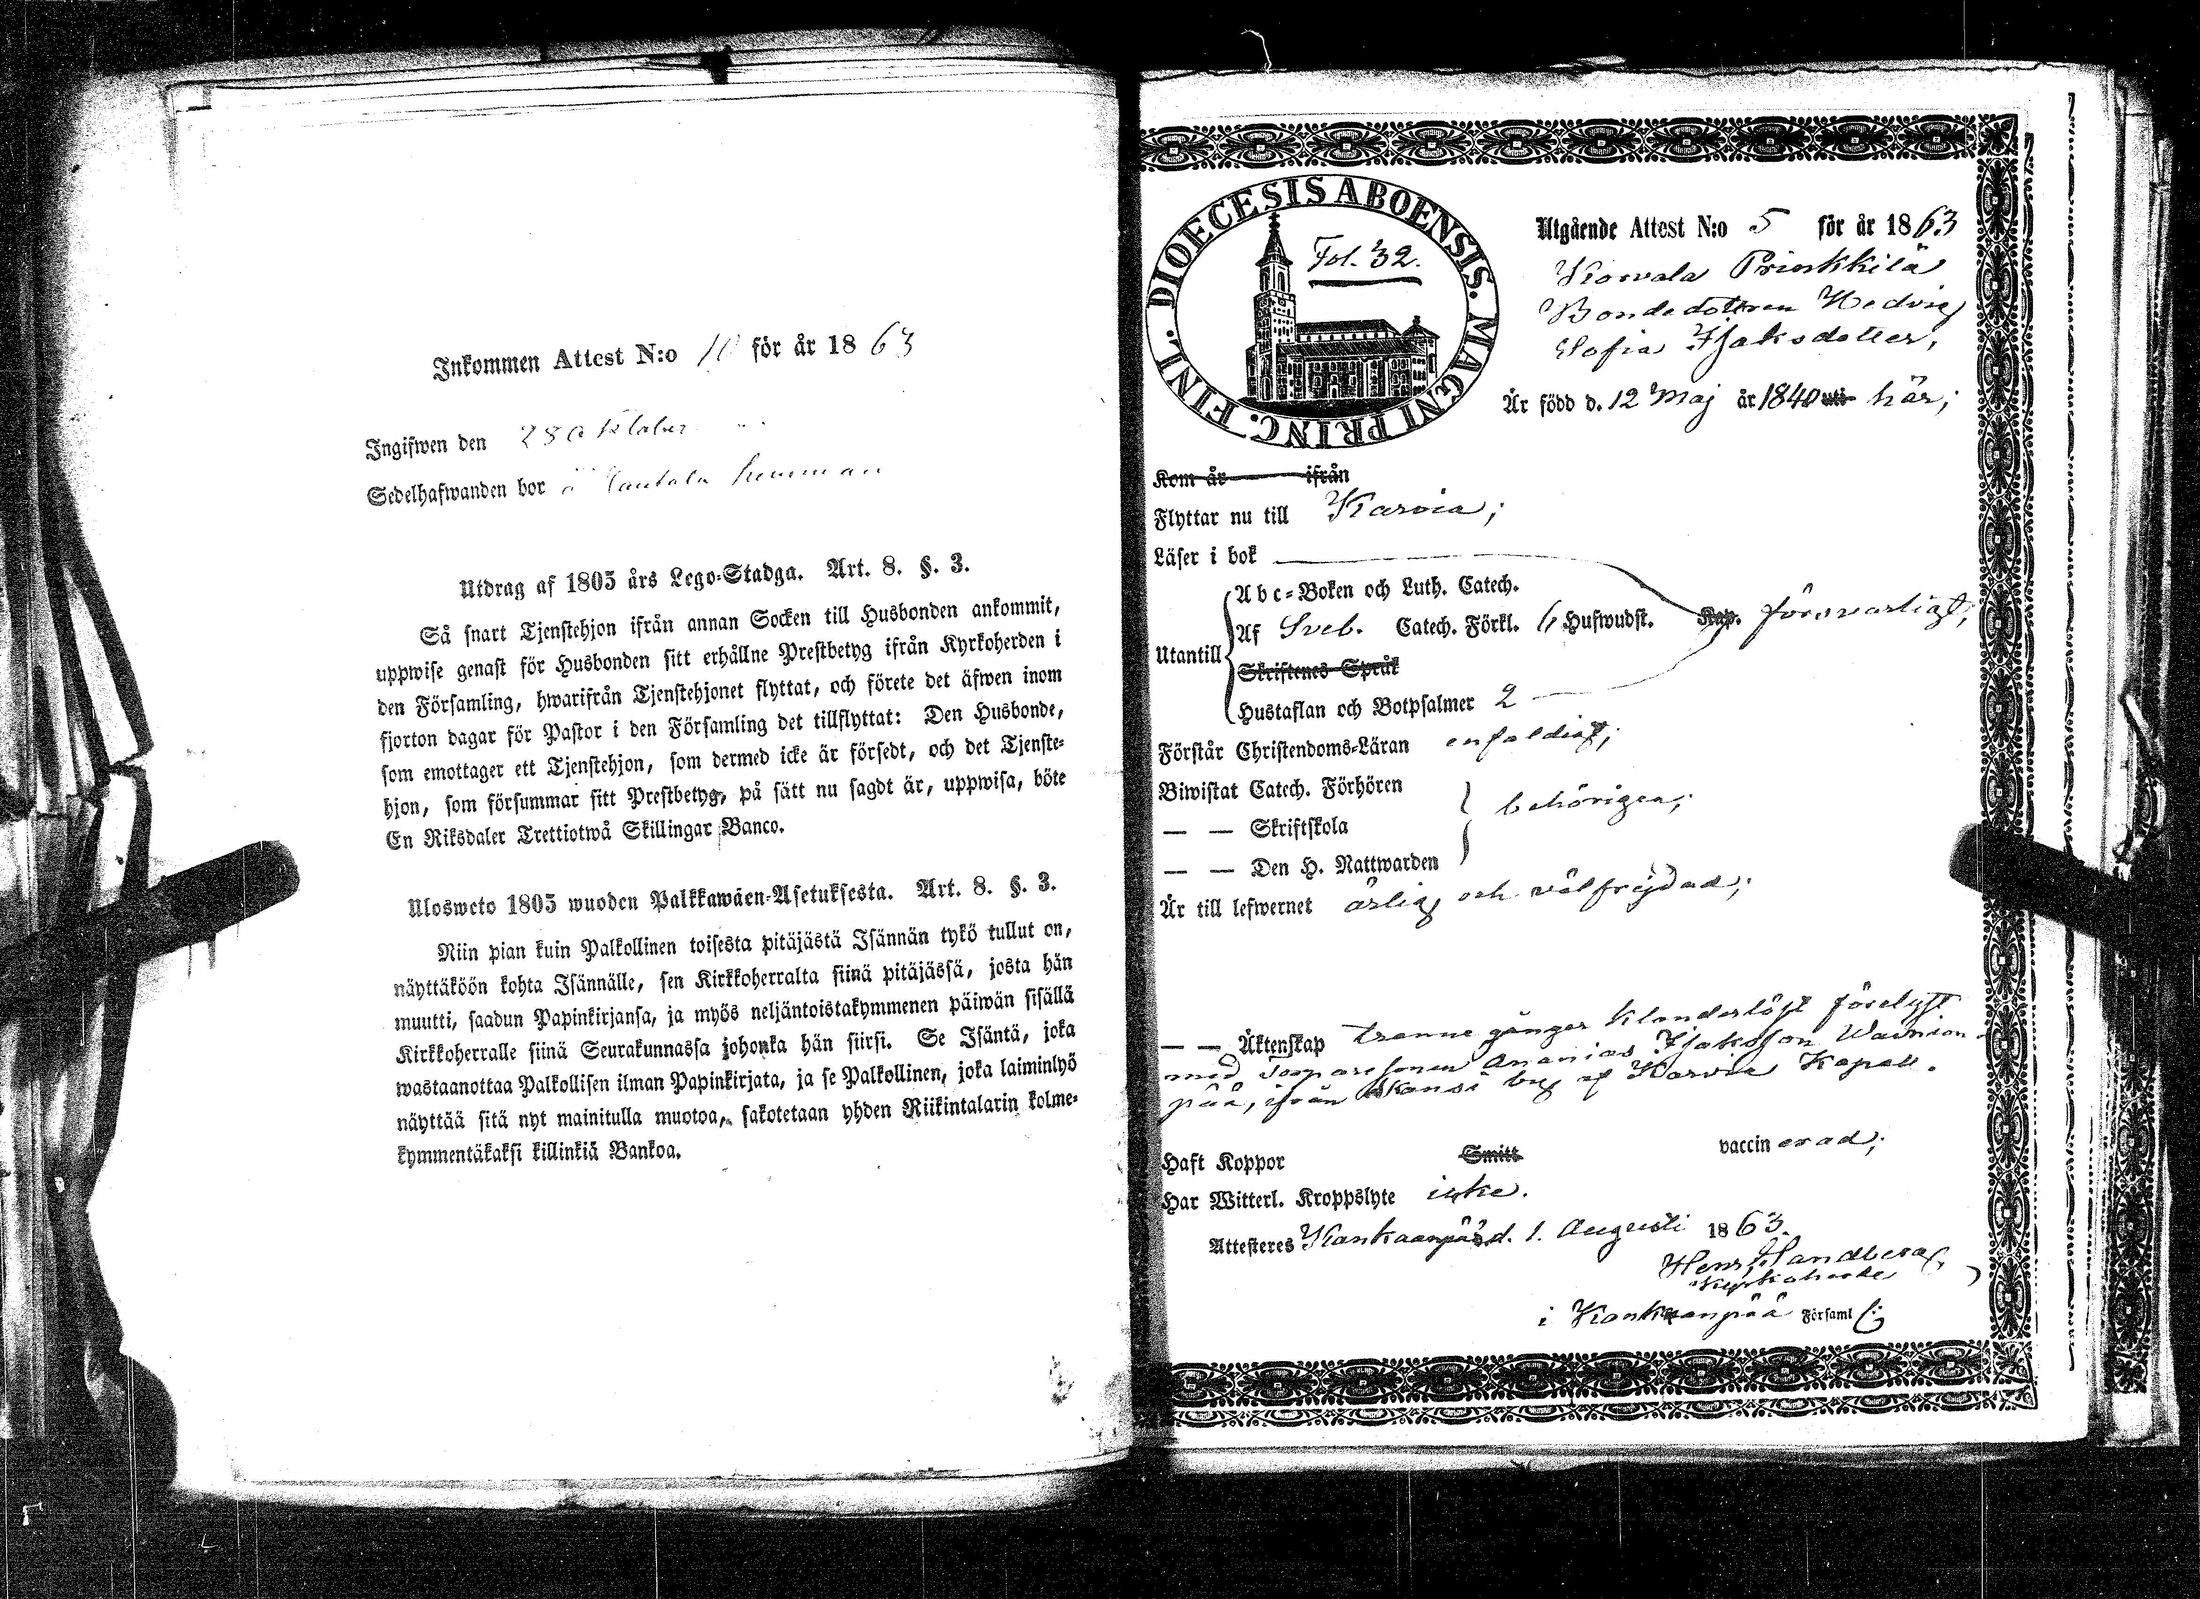 Inkommen Attest N:o 10 för år 1863
Ingifwen den 28 Oktober
Sedelhafwanden bor å
Utdrag af 1805 års Lego-Stadga. Art. 8. §. 3.
Så snart Tjenstehjon ifrån annan Socken till Husbonden ankommit,
uppwise genast för Husbonden sitt erhållne Prestbetyg ifrån Kyrkoherden i
den Församling, hwarifrån Tjenstehjonet flyttat, och förete det äfwen inom
fjorton dagar för Pastor i den Församling det tillflyttat: Den Husbonde,
som emottager ett Tjenstehjon, som dermed icke är försedt, och det Tjenste-
hjon, som försummar sitt Prestbetyg, på sätt nu sagdt är, uppwisa, böte
En Riksdaler Trettiotwå Skillingar Banco.
Ulosweto 1805 wuoden Palkkawäen-Asetuksesta. Art. 8. §. 3.
Niin pian kuin Palkollinen toisesta pitäjästä Isännän tykö tullut on,
näyttäköön kohta Isännälle, sen Kirkkoherralta siinä pitäjässä, josta hän
muutti, saadun Papinkirjansa, ja myös neljäntoistakymmenen päiwän sisällä
Kirkkoherralle siinä Seurakunnassa johonka hän siirsi. Se Isäntä, joka
wastaanottaa Palkollisen ilman Papinkirjata, ja se Palkollinen, joka laiminlyö
näyttää sitä nyt mainitulla muotoa, sakotetaan yhden Riikintalarin kolme-
kymmentäkaksi killinkiä Bankoa.
DIOECESIS ABOENSIS. MAGNI PRINC. FINL.
Fol. 32.
Utgående Attest N:o 5 för år 1863
Prinkkilä
Bondedottren Hedvig
Sofia Isaksdotter,
Är född d. 12 Maj år 1840 uti här;
Kom år ifrån
Flyttar nu till Karvia;
Läser i bok
Utantill
Abc-Boken och Luth. Catech.
Af Sveb. Catech. Förkl. 6 Hufwudst. Kap. försvarligt,
Skriftenes Språk
Hustaflan och Botpsalmer 2
Förstår Christendoms-Läran enfaldigt;
Biwistat Catech. Förhören
— — Skriftskola behörigen;
— — Den H. Nattwarden
Är till lefwernet ärlig och välfrejdad;
— — Äktenskap trenne gånger klanderlöst förelyst
med Ananias Isaksson
pää, ifrån by af Karvia Kapell.
Haft Koppor Smitt vaccinerad;
Har Witterl. Kroppslyte icke.
Attesteres Kankaanpää d. 1. Augusti 1863.
Henr. Sandberg,
Kyrkoherde
i Kankaanpää Församl.